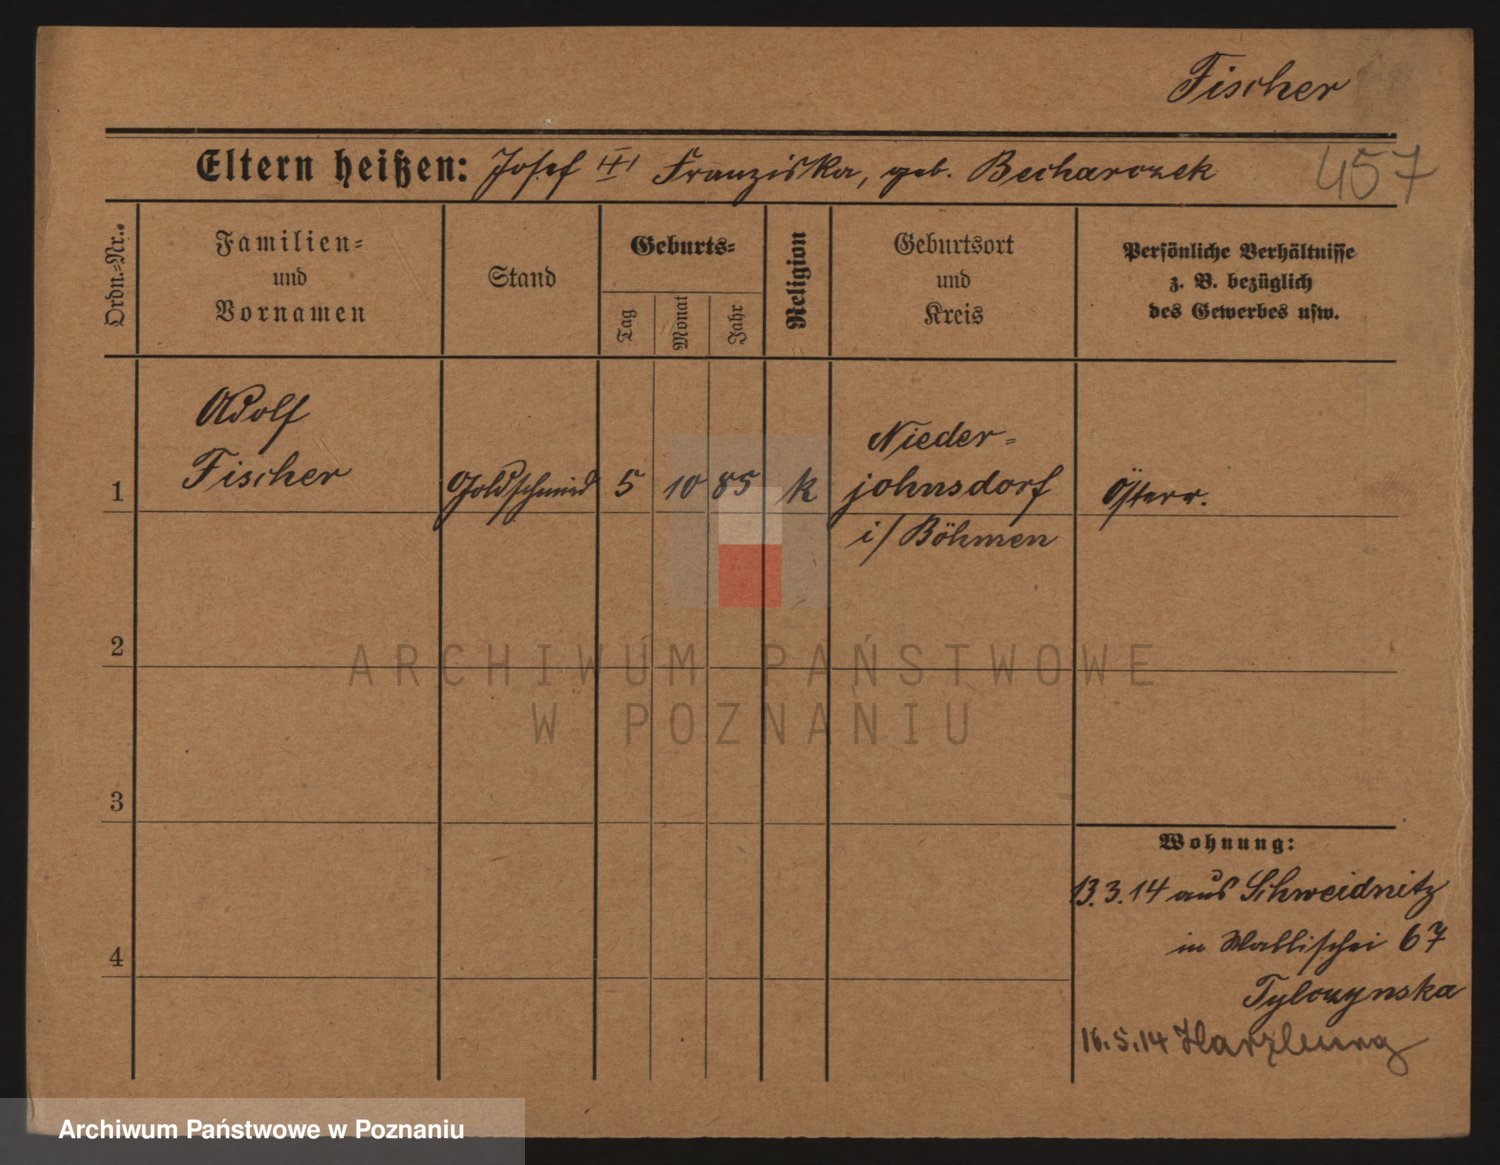 Fischer
Eltern heißen: Josef Franziska, geb. Becharczek
457
Ordn.=Nr.
Familien=
und
Vornamen
Stand
Geburts=
Tag
Monat
Jahr
Religion
Geburtsort
und
Kreis
Persönliche Verhältnisse
z. B. bezüglich
des Gewerbes usw.
Adolf
Fischer
1
Goldschmied
5
10
85
k
Nieder-
johnsdorf
i/ Böhmen
Österr.
2
3
4
Wohnung:
13.3.14 aus Schweidnitz
in Wallischei 67
Tyloczynska
16.5.14 Harzburg
ARCHIWUM PAŃSTWOWE
W POZNANIU
Archiwum Państwowe w Poznaniu